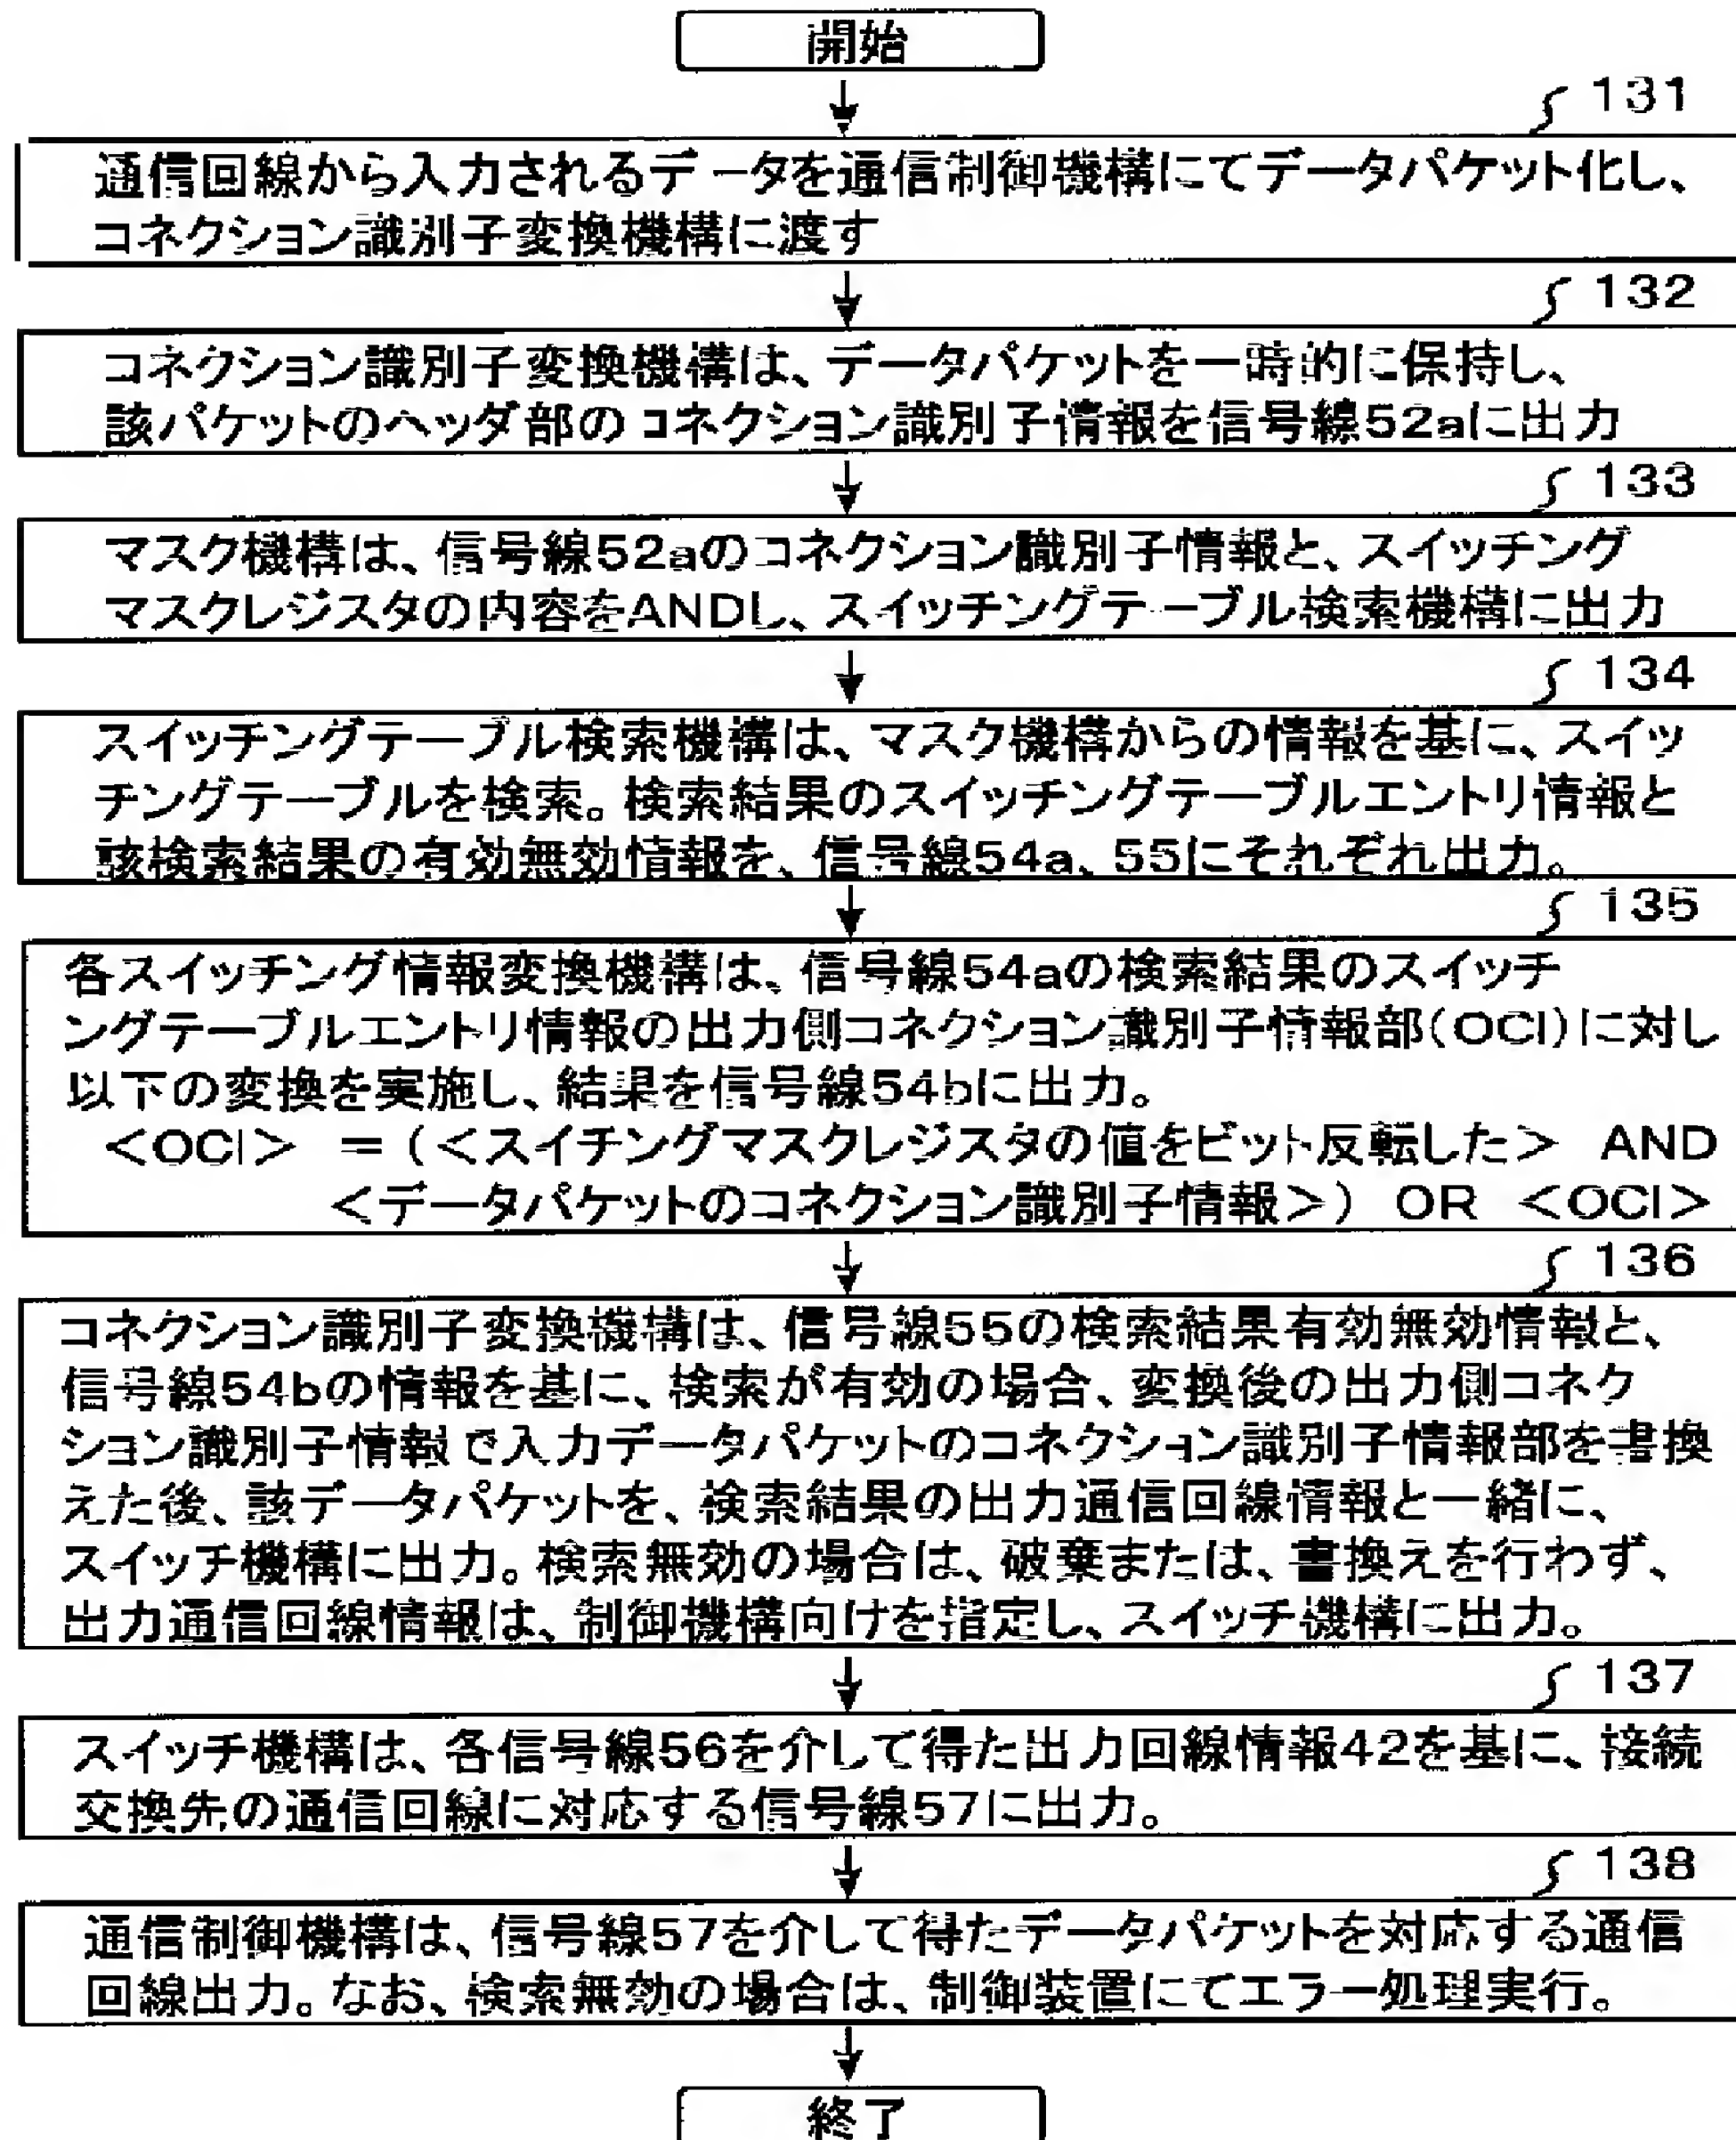 開始
131
通信回線から入力されるデータを通信制御機構にてデータパケット化し、
コネクション識別子変換機構に渡す
132
コネクション識別子変換機構は、データパケットを一時的に保持し、
該パケットのヘッダ部のコネクション識別子情報を信号線52aに出力
133
マスク機構は、信号線52aのコネクション識別子情報と、スイッチング
マスクレジスタの内容をANDし、スイッチングテーブル検索機構に出力
134
スイッチングテーブル検索機構は、マスク機構からの情報を基に、スイッ
チングテーブルを検索。検索結果のスイッチングテーブルエントリ情報と
該検索結果の有効無効情報を、信号線54a、55にそれぞれ出力。
135
各スイッチング情報変換機構は、信号線54aの検索結果のスイッチ
ングテーブルエントリ情報の出力側コネクション識別子情報部(OCI)に対し
以下の変換を実施し、結果を信号線54bに出力。
<OCI> =(<スイチングマスクレジスタの値をビット反転した> AND
<データパケットのコネクション識別子情報>) OR <OCI>
136
コネクション識別子変換機構は、信号線55の検索結果有効無効情報と、
信号線54bの情報を基に、検索が有効の場合、変換後の出力側コネク
ション識別子情報で入力データパケットのコネクション識別子情報部を書換
えた後、該データパケットを、検索結果の出力通信回線情報と一緒に、
スイッチ機構に出力。検索無効の場合は、破棄または、書換えを行わず、
出力通信回線情報は、制御機構向けを指定し、スイッチ機構に出力。
137
スイッチ機構は、各信号線56を介して得た出力回線情報42を基に、接続
交換先の通信回線に対応する信号線57に出力。
138
通信制御機構は、信号線57を介して得たデータパケットを対応する通信
回線出力。なお、検索無効の場合は、制御装置にてエラー処理実行。
終了